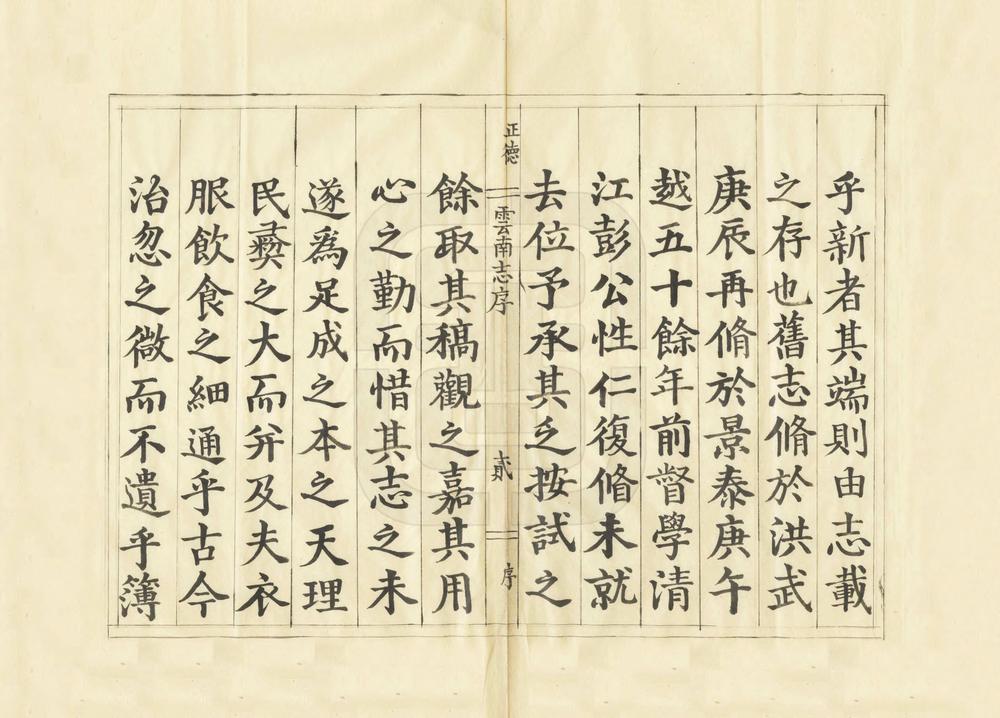 乎新者其端則由志載
之存也舊志脩於洪武
庚辰再脩於景泰庚午
越五十餘年前督學清
江彭公性仁復脩未就
去位予承其乏按試之
正德
雲南志序
貳
序
餘取其稿觀之嘉其用
心之勤而惜其志之未
遂爲足成之本之天理
民彝之大而并及夫衣
服飲食之細通乎古今
治忽之微而不遺乎簿